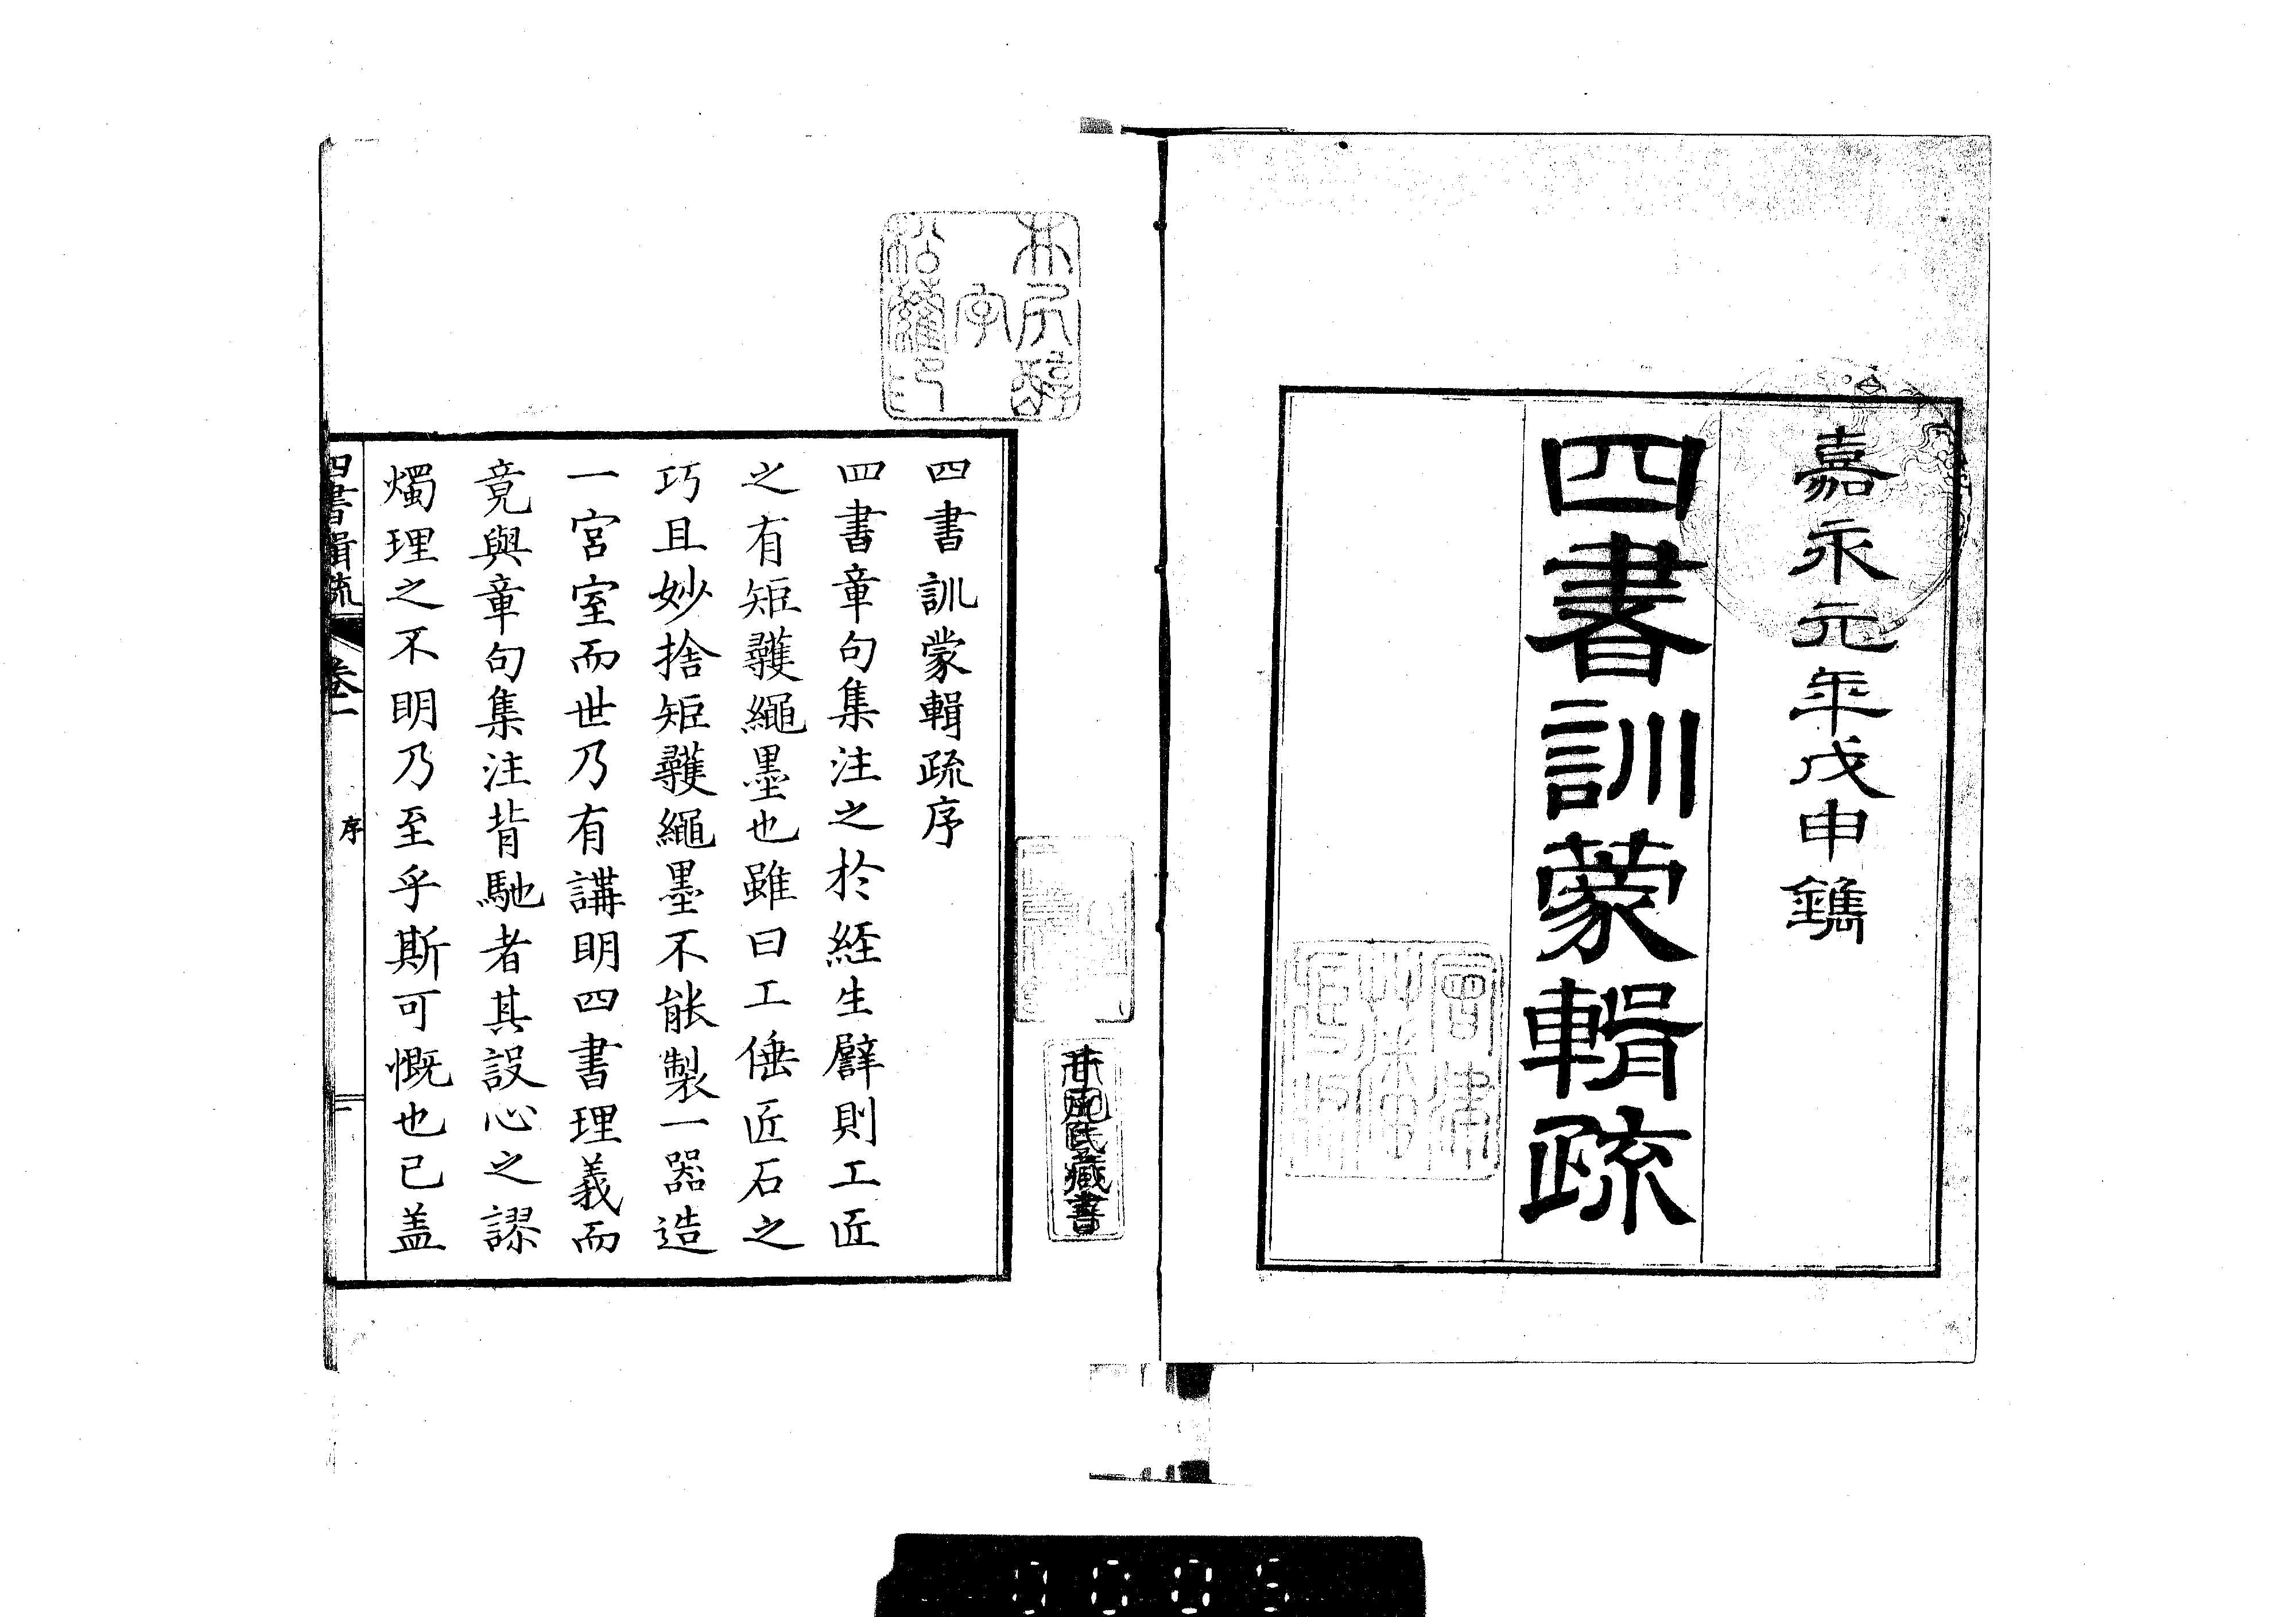 嘉永元年戊申鐫
四書訓蒙輯疏
會津
四書訓蒙輯疏序
四書章句集注之於經生辟則工匠
之有矩彠繩墨也雖曰工倕匠石之
巧且妙捨矩彠繩墨不能製一器造
一宮室而世乃有講明四書理義而
竟與章句集注背馳者其設心之謬
燭理之不明乃至乎斯可慨也已蓋
四書輯疏
卷一
序
一
氏藏書
0005